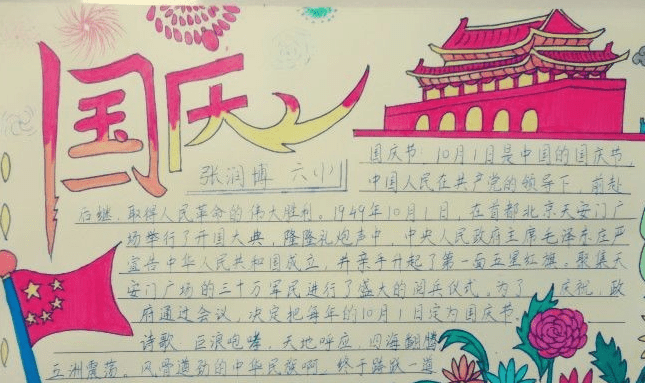 国庆
张润博 六(1)
国庆节：10月1日是中国的国庆节，
中国人民在共产党的领导下，前赴
后继，取得人民革命的伟大胜利。1949年10月1日，在首都北京天安门广
场举行了开国大典，隆隆礼炮声中，中央人民政府主席毛泽东庄严
宣告中华人民共和国成立，并亲手升起了第一面五星红旗。聚集天
安门广场的三十万军民进行了盛大的阅兵仪式。为了 庆祝，政
府通过会议，决定把每年的10月1日定为国庆节。
诗歌：巨浪咆哮，天地呼应，四海翻腾
五洲震荡。风骨遒劲的中华民族啊，终于踏跃一道